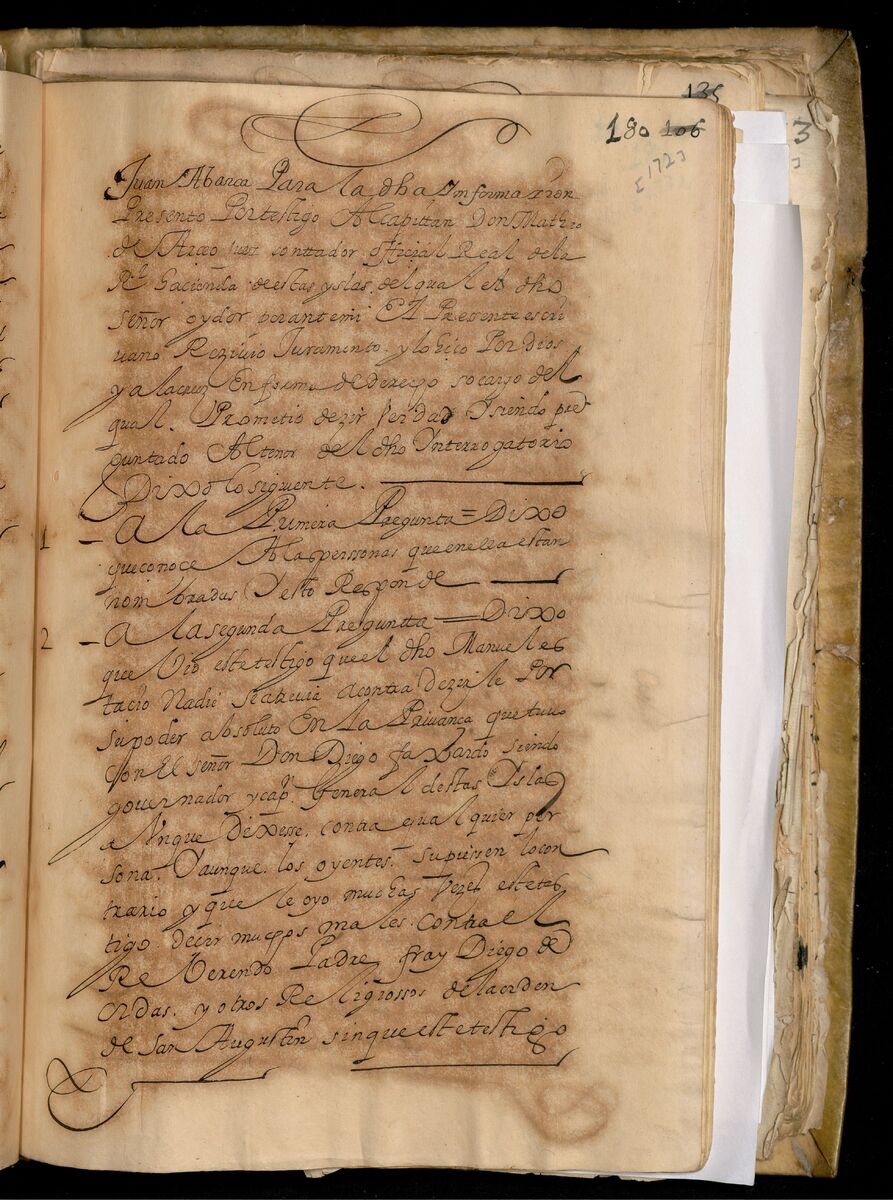 135
180 106
3
[172]
Juan Abarca Para la dha Ynformaxion
Presento Portestigo Alcapittan Don Matheo
de Arceo Juez conttador official Real dela
Rl hacienda deestas yslas, delqual el dho
señor oydor porantemi El Presente escri
uano Reziuio Juramento, y lo hico Por dios
y a lacruz En forma de derecho so cargo del
qual, Prometio dezir verdad Y siendo pre
guntado Al tenor del dho Ynterrogatorio
Dixo lo siguiente.
1 - A la Primera Pregunta = Dixo
que conoce A las personas que en ella estan
nombradas Y esto Responde
2 - A la segunda Preguntta = Dixo
que Vio este testigo que el dho Manuel es
tacio Nadie se atreuia acontradezirle Por
su poder absoluto En la Priuanca que tuuo
con El señor Don Diego faxardo siendo
gouernador y cap. General destas Yslas
aUnque Dixesse, contra qualquier per
sona, Yaunque, los oyentes, supiessen lo con
trario y que le oyo muchas Vezes este tes
tigo, decir muchos males, contra el
ReVerendo Padre, fray Diego de
Ordas, y otros Religiossos dela orden
de san Augustin sin que este testigo